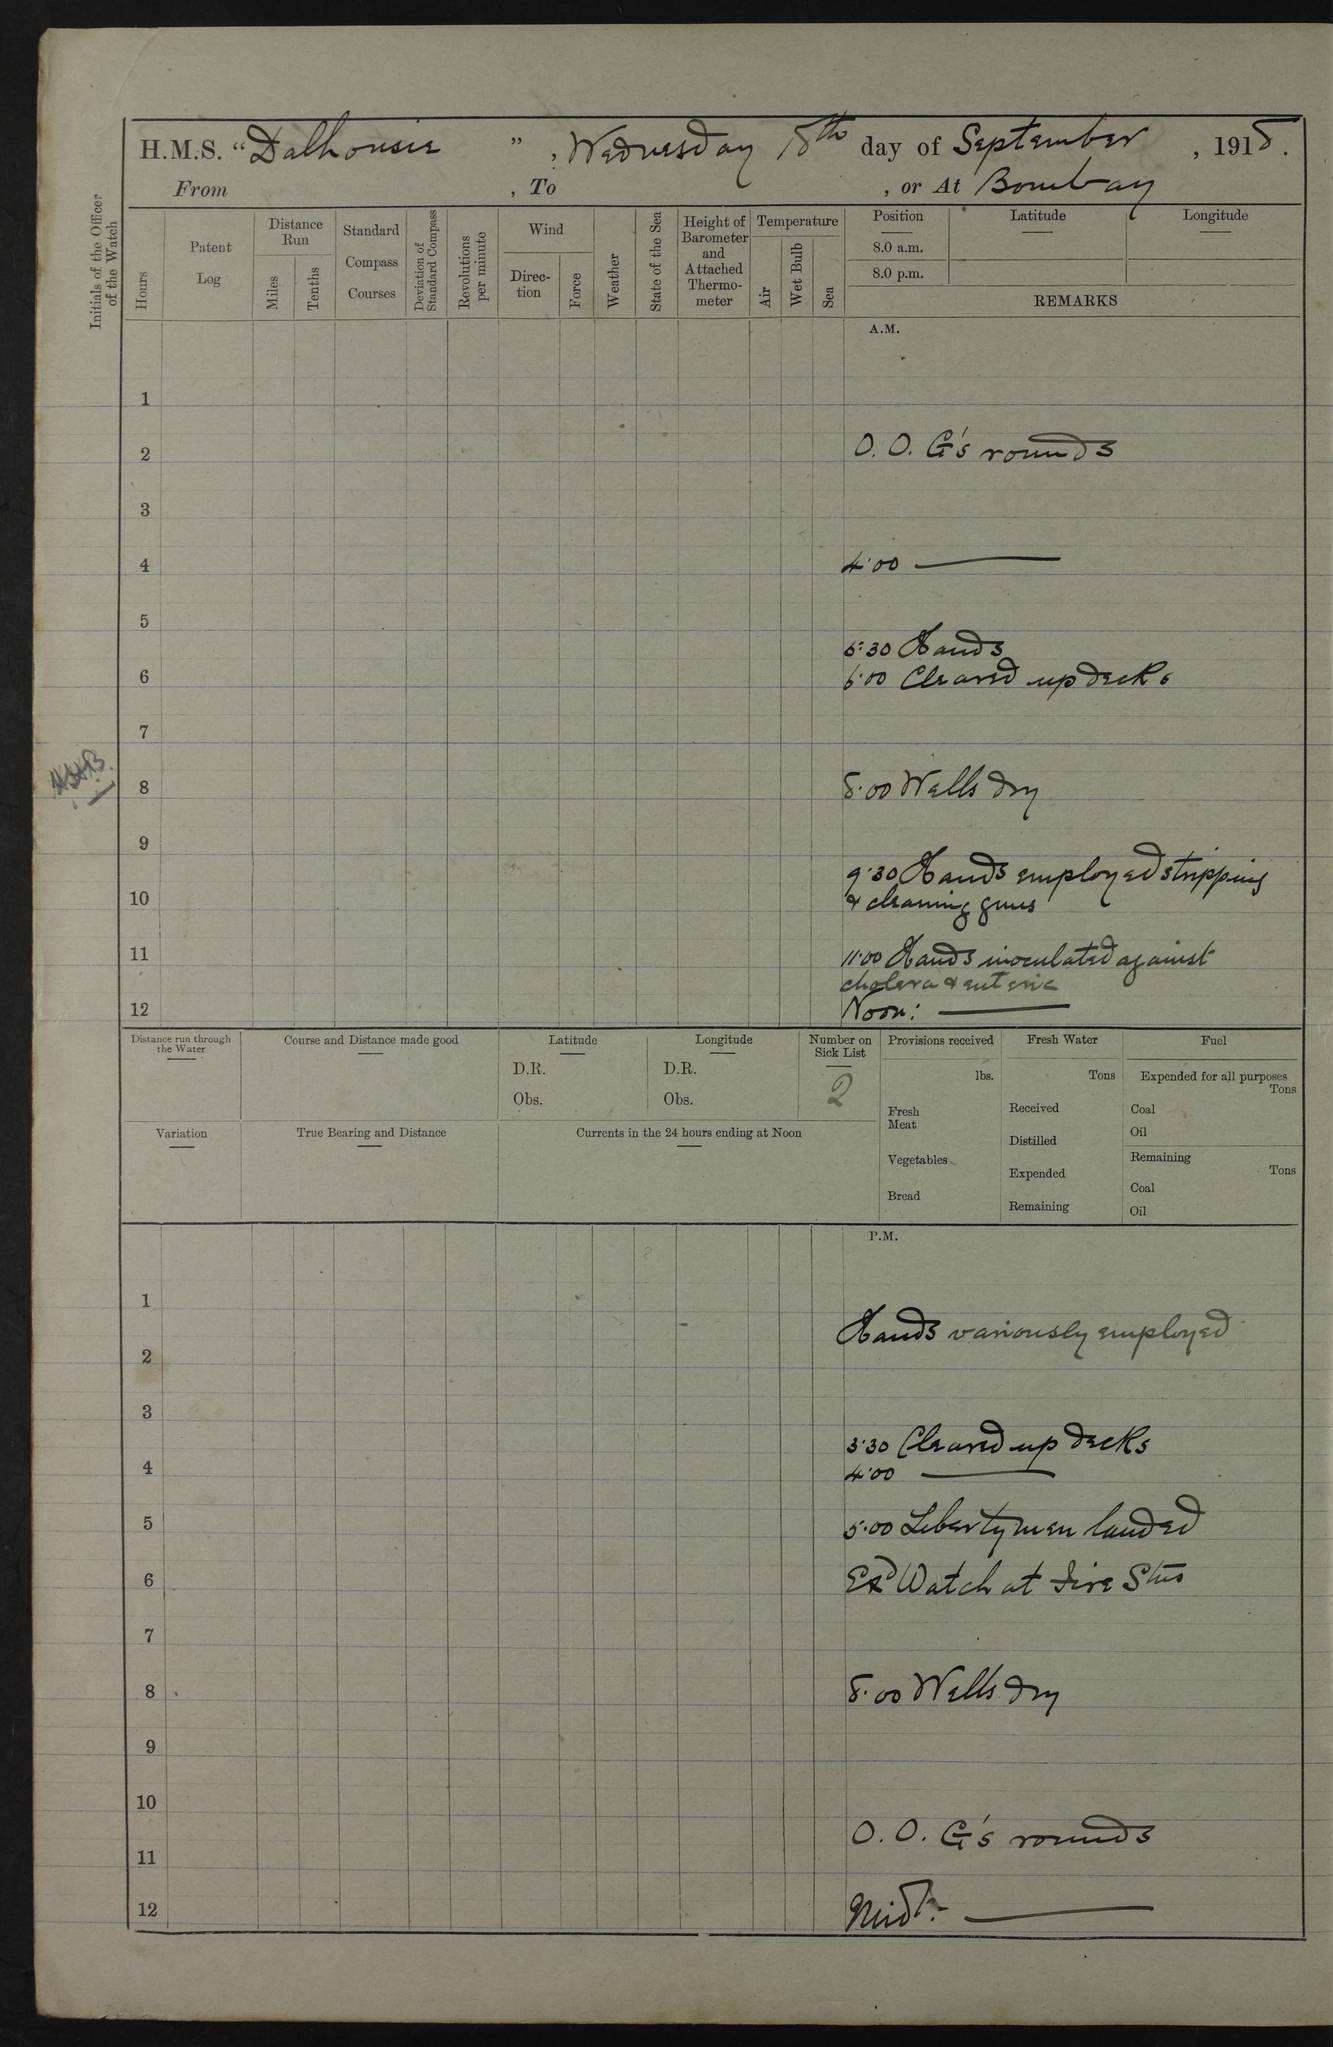 H.M.S. "Dalhousie", Wednesday 18th day of September, 1918.
From , To , or At Bombay
Initials of the Officer of the Watch
Hours
Patent Log
Distance Run
Miles
Tenths
Standard Compass Courses
Deviation of Standard Compass
Revolutions per minute
Wind
Direc-tion
Force
Weather
State of the Sea
Height of Barometer and Attached Thermo-meter
Temperature
Air
Wet Bulb
Sea
Position
8.0 a.m.
8.0 p.m.
Latitude
Longitude
REMARKS
A.M.
1
2 O. O. G's rounds
3
4 4.00
5
5.30 Hands
6 6.00 Cleared up decks
7
8 8.00 Wells dry
9
9.30 Hands employed stripping
10 & cleaning guns
11 11.00 Hands inoculated against
cholera & enteric
12 Noon:
Distance run through the Water
Course and Distance made good
Latitude
D.R.
Obs.
Longitude
D.R.
Obs.
Number on Sick List
2
Provisions received
lbs.
Fresh Meat
Vegetables
Bread
Fresh Water
Tons
Received
Distilled
Expended
Remaining
Fuel
Expended for all purposes
Tons
Coal
Oil
Remaining
Tons
Coal
Oil
Variation
True Bearing and Distance
Currents in the 24 hours ending at Noon
P.M.
1
Hands variously employed
2
3
3.30 Cleared up decks
4 4.00
5 5.00 Libertymen landed
6 Exd Watch at Fire Stns
7
8 8.00 Wells dry
9
10
O. O. G's rounds
11
12 Midt: